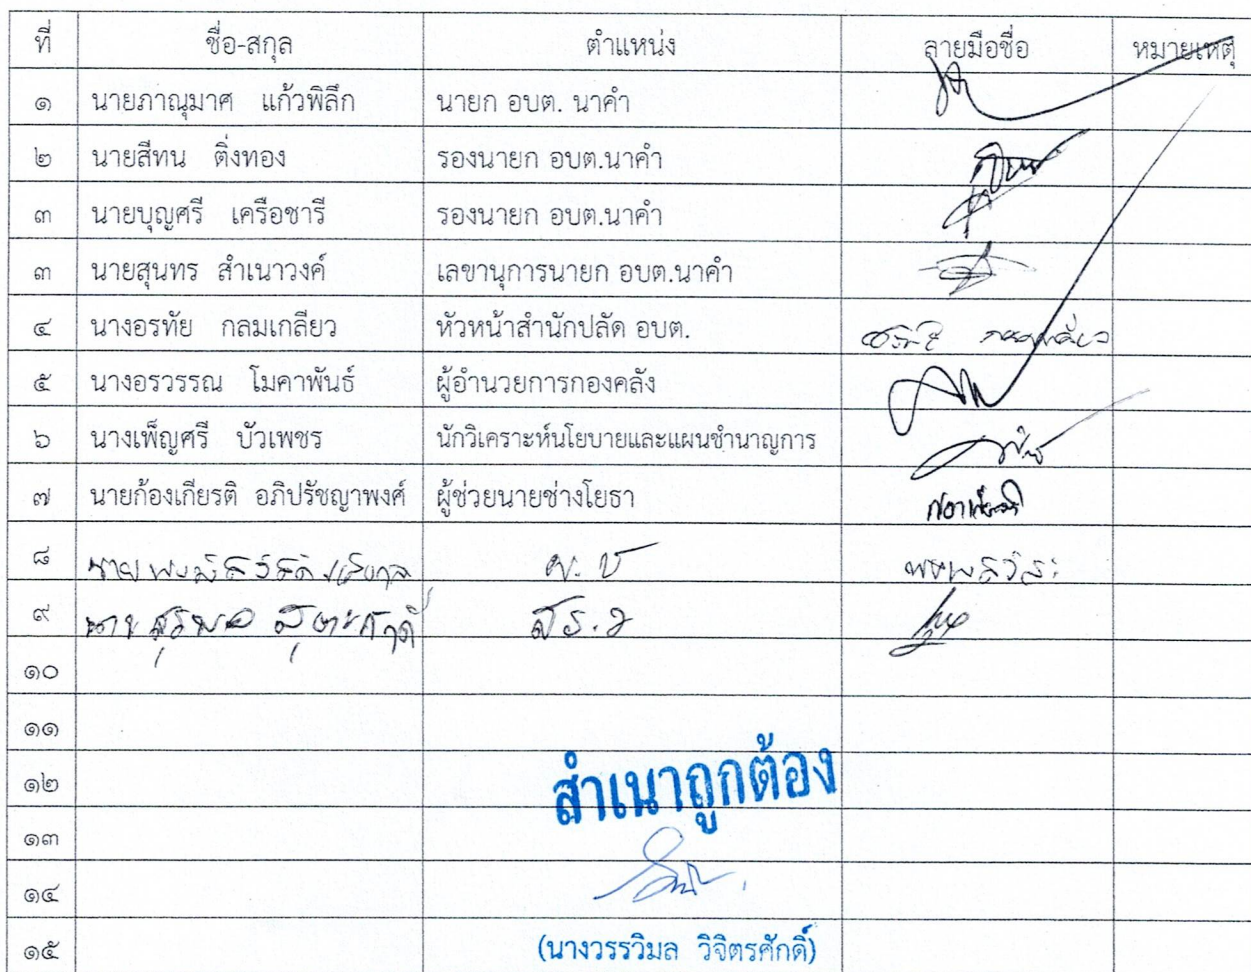 ที่ ชื่อ-สกุล ตำแหน่ง ลายมือชื่อ หมายเหตุ
๑ นายภาณุมาศ แก้วพิลึก นายก อบต. นาคำ
๒ นายสีทน ติ่งทอง รองนายก อบต.นาคำ
๓ นายบุญศรี เครือชารี รองนายก อบต.นาคำ
๓ นายสุนทร สำเนาวงค์ เลขานุการนายก อบต.นาคำ
๔ นางอรทัย กลมเกลียว หัวหน้าสำนักปลัด อบต. อรทัย กลมเกลียว
๕ นางอรวรรณ โมคาพันธ์ ผู้อำนวยการกองคลัง
๖ นางเพ็ญศรี บัวเพชร นักวิเคราะห์นโยบายและแผนชำนาญการ
๗ นายก้องเกียรติ อภิปรัชญาพงศ์ ผู้ช่วยนายช่างโยธา ก้องเกียรติ
๘ นาย
๙ นาย
๑๐
๑๑
๑๒ สำเนาถูกต้อง
๑๓
๑๔
๑๕ (นางวรรวิมล วิจิตรศักดิ์)